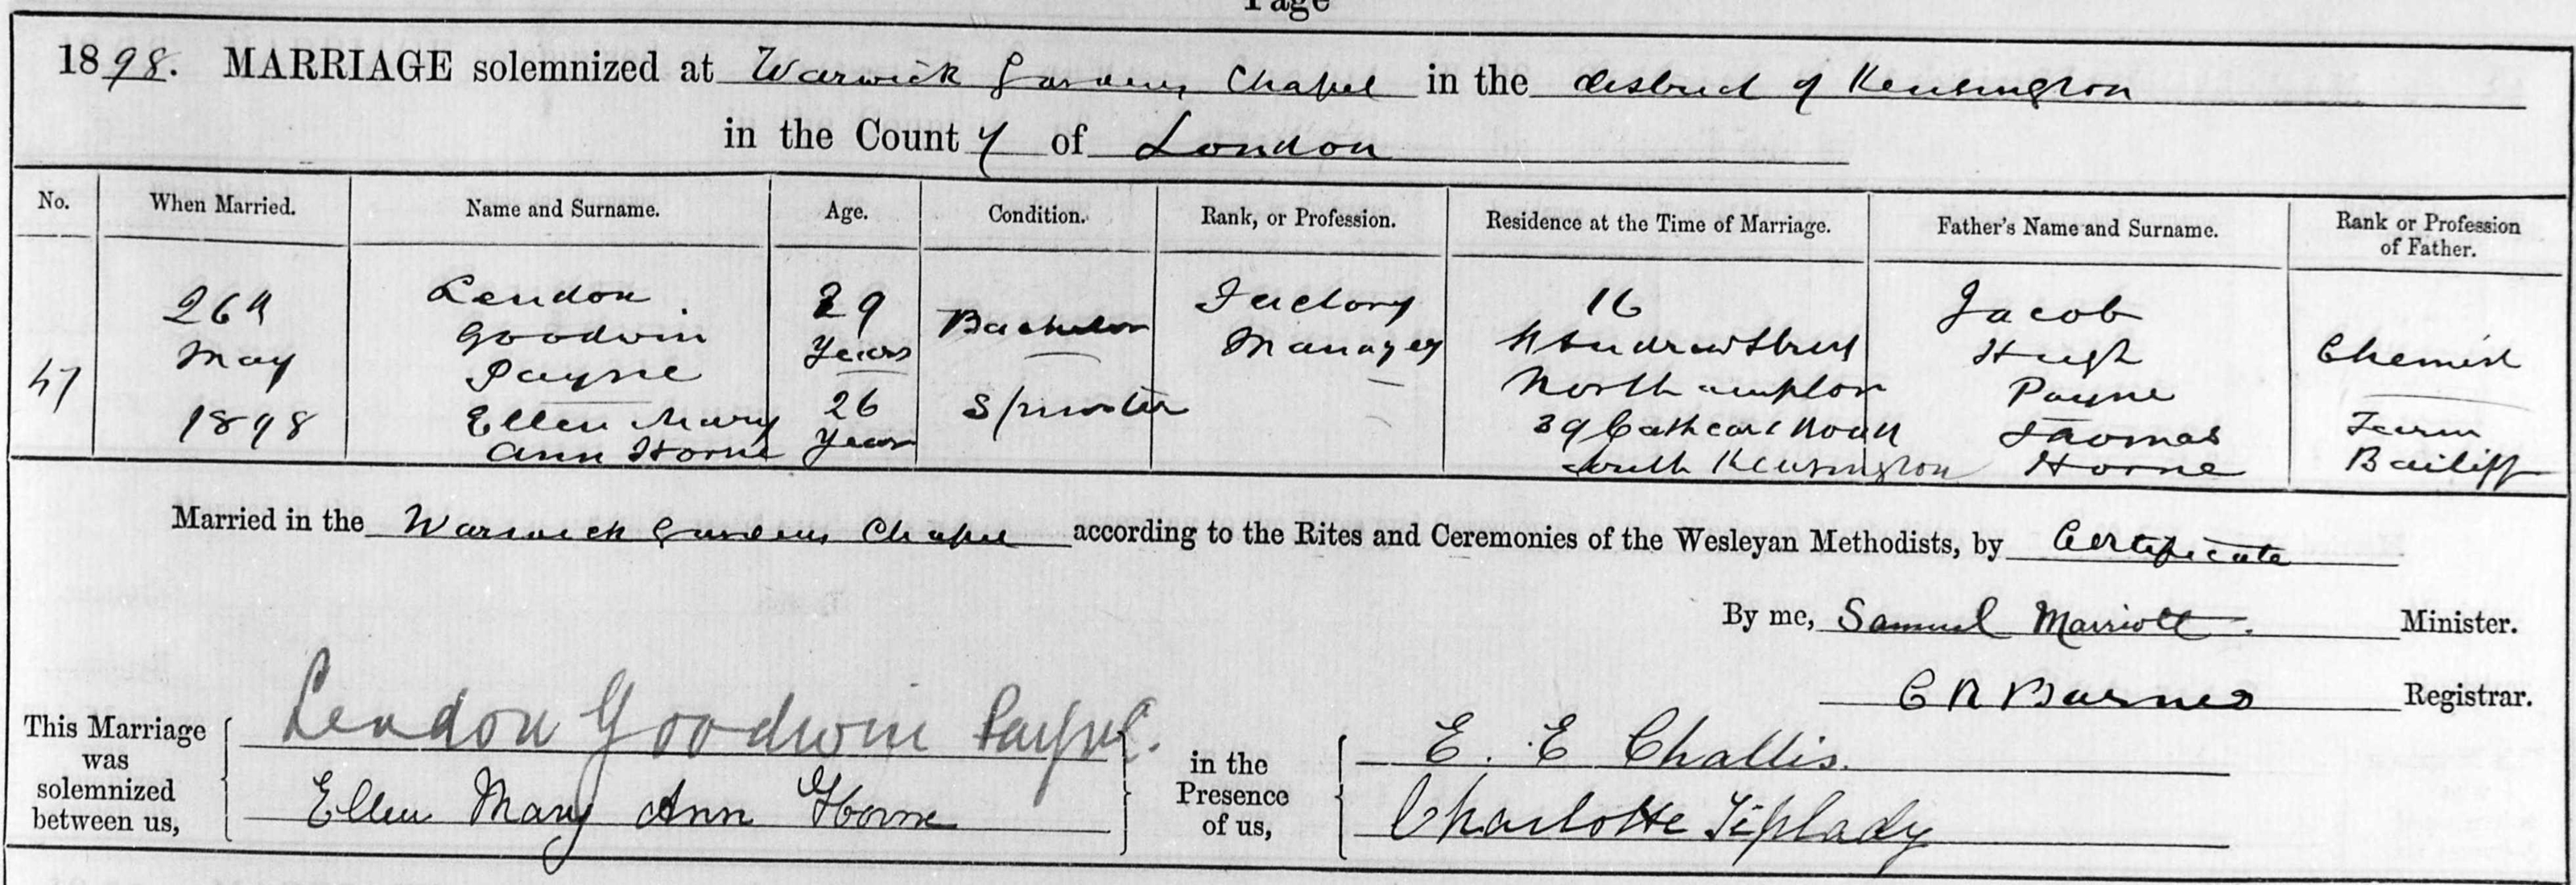 Page
1898. MARRIAGE solemnized at Warwick Gardens Chapel in the district of Kensington
in the County of London
No. When Married. Name and Surname. Age. Condition. Rank, or Profession. Residence at the Time of Marriage. Father's Name and Surname. Rank or Profession of Father.
47 26th May 1898 Lendon Goodwin Payne 29 Years Bachelor Factory Manager 16 St Andrew Street Northampton Jacob Hugh Payne Chemist
Ellen Mary Ann Horne 26 Years Spinster 39 Cathcart Road South Kensington Thomas Horne Farm Bailiff
Married in the Warwick Gardens Chapel according to the Rites and Ceremonies of the Wesleyan Methodists, by Certificate
By me, Samuel Marriott. Minister.
C R Barnes Registrar.
This Marriage was solemnized between us, Lendon Goodwin Payne. in the Presence of us, E. E Challis.
Ellen Mary Ann Horne Charlotte Tiplady